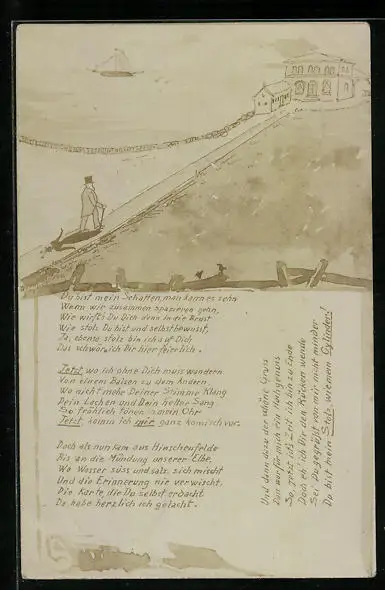 Du bist mein Schatten, man kann es sehn
Wenn wir zusammen spazieren gehn,
Wie wirfst Du Dich denn in die Brust
Wie stolz Du bist und selbstbewusst,
Ja, ebenso stolz bin ich auf Dich
Das schwör ich Dir hier feierlich.
Jetzt wo ich ohne Dich muss wandern
Von einem Balzen zu dem Andern
Wo nicht mehr Deiner Stimme Klang
Dein Lachen und Dein heller Sang
So fröhlich tönen an mein Ohr
Jetzt komm ich mir ganz komisch vor.
Doch als nun kam aus Hirschenfelde
Bis an die Mündung unserer Elbe,
Wo Wasser süss und salz sich mischt
Und die Erinnerung nie verwischt,
Die Karte, die Du selbst erdacht
Da habe herzlich ich gelacht.
Und dann dazu der schöne Gruss
Das war für mich ein Hochgenuss
So, jetzt ist's Zeit ich bin zu Ende
Doch eh' ich Dir den Rücken wende
Sei Du gegrüßt von mir nicht minder
Du bist mein Stolz wie mein Cylinder!